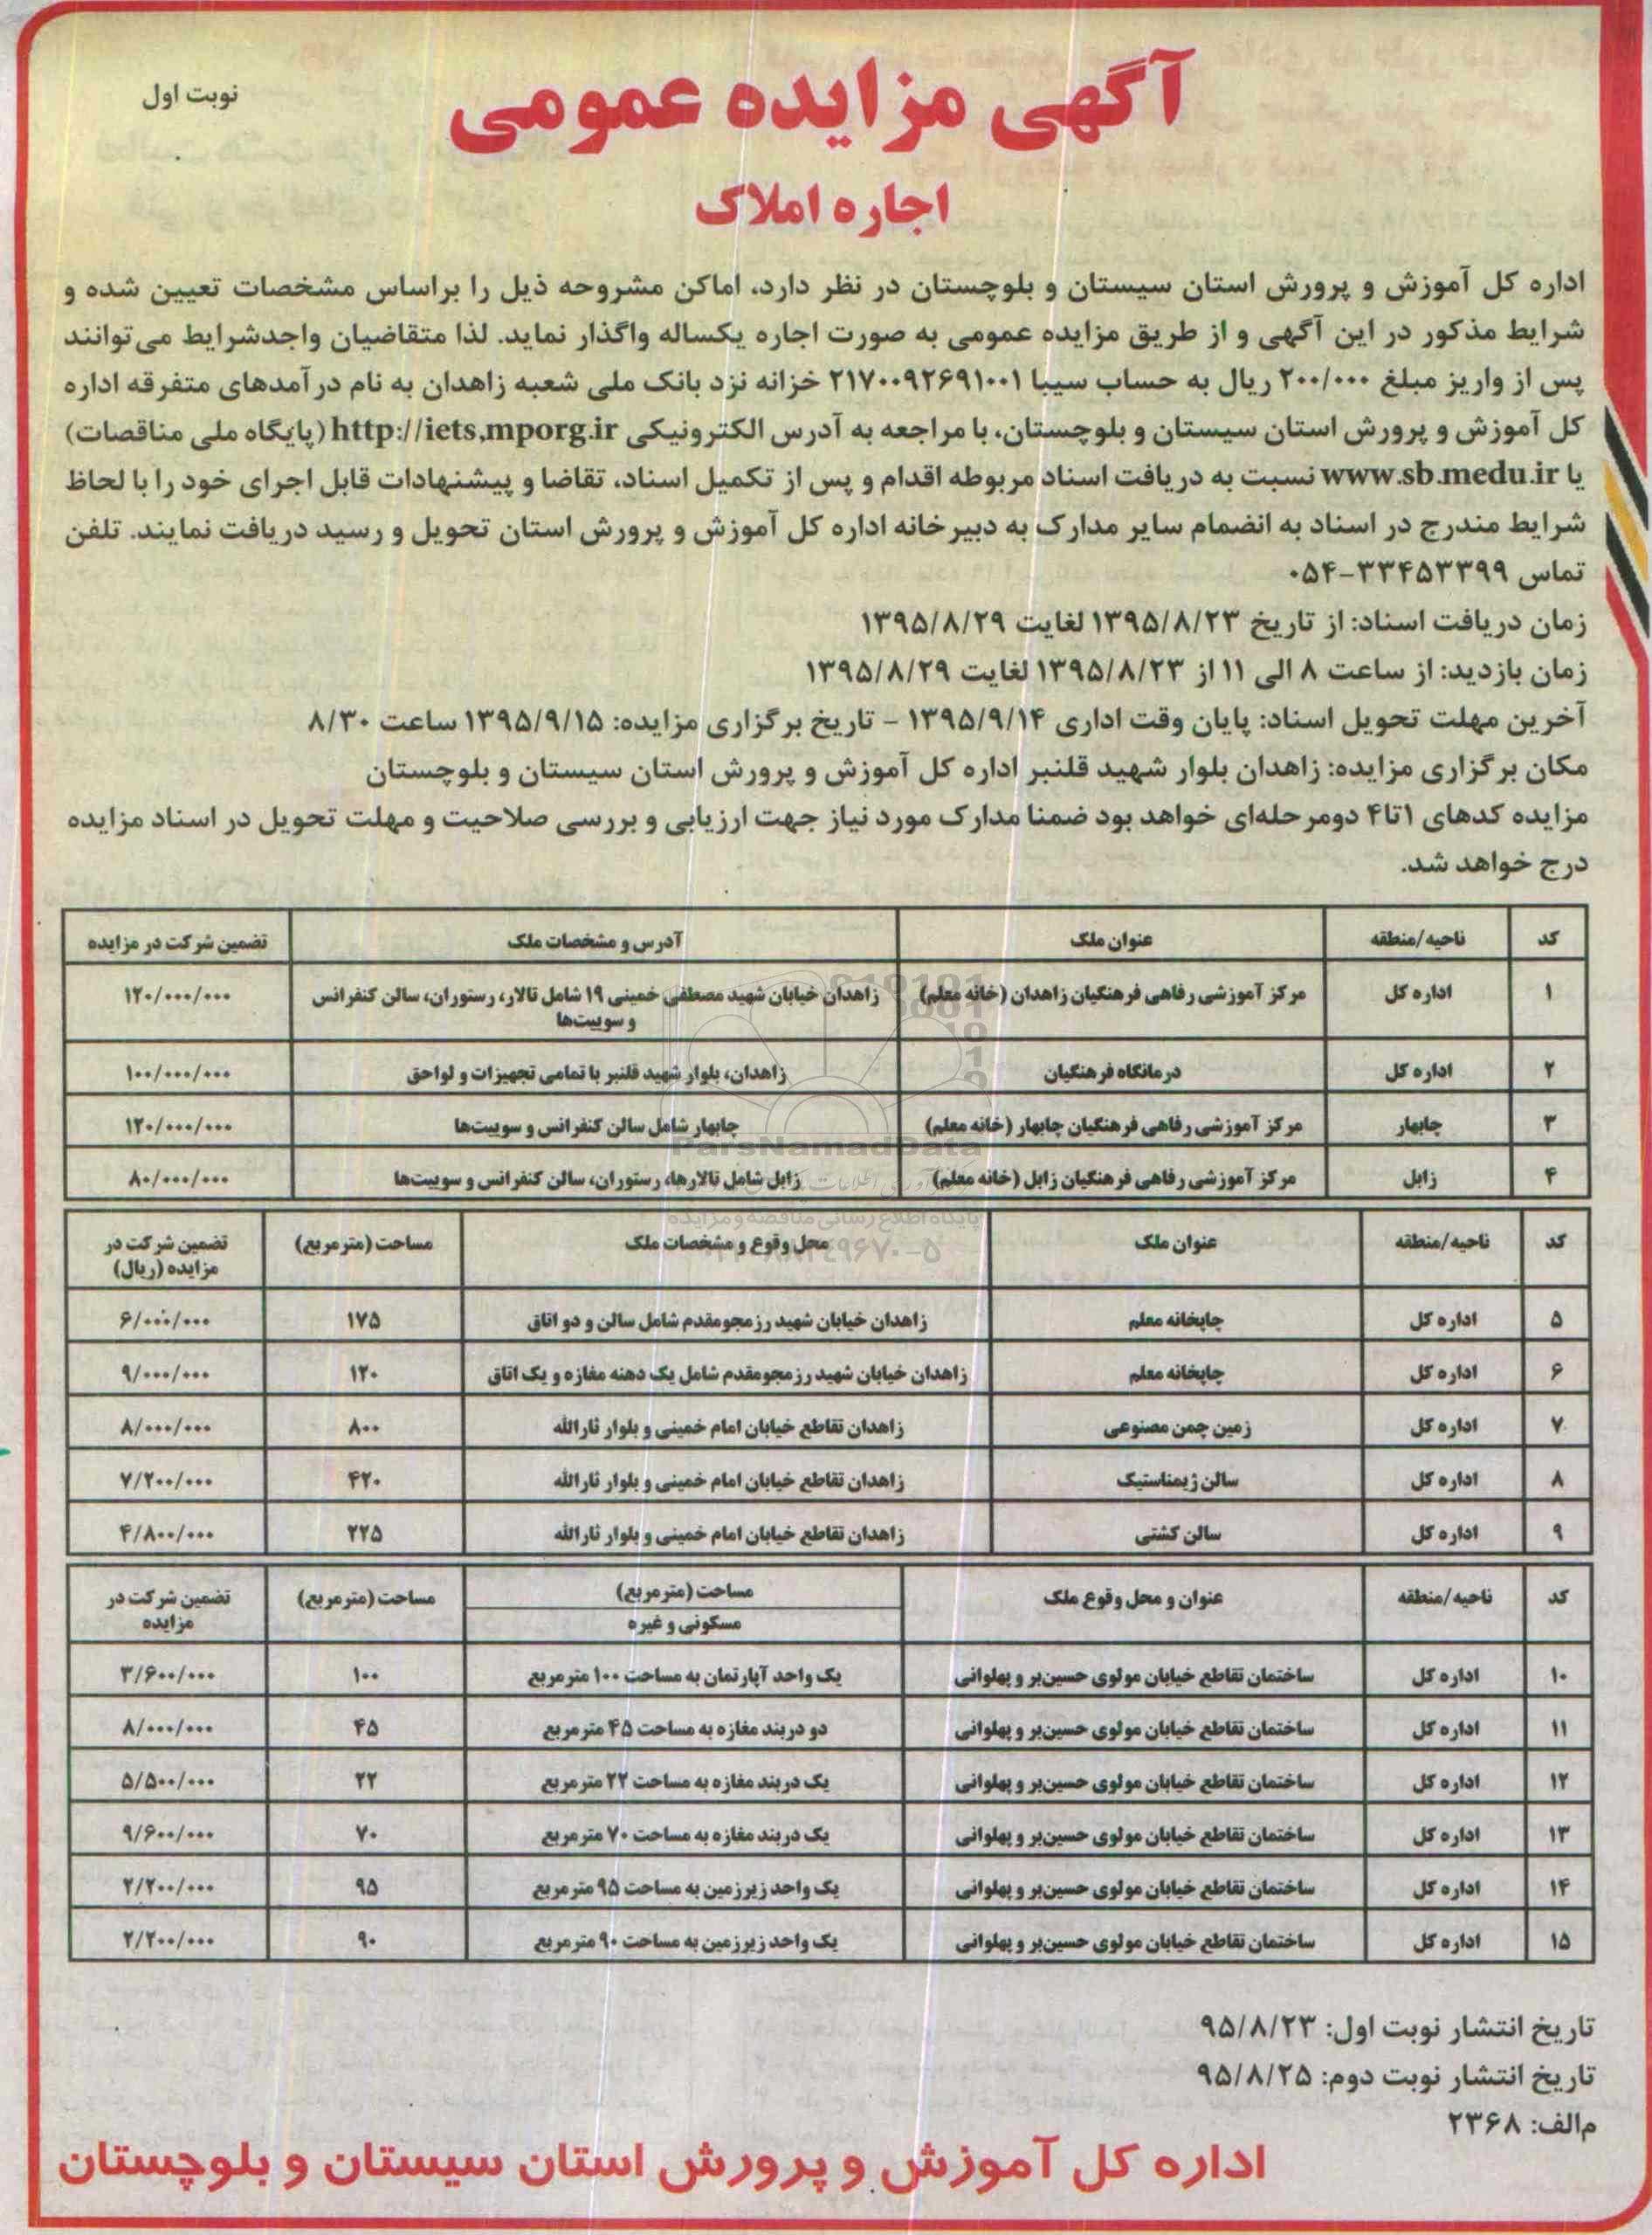 نوبت اول
آگهی مزایده عمومی
اجاره املاک
اداره کل آموزش و پرورش استان سیستان و بلوچستان در نظر دارد، اماکن مشروحه ذیل را براساس مشخصات تعیین شده و
شرایط مذکور در این آگهی و از طریق مزایده عمومی به صورت اجاره یکساله واگذار نماید. لذا متقاضیان واجدشرایط می‌توانند
پس از واریز مبلغ ۲۰۰/۰۰۰ ریال به حساب سیبا ۲۱۷۰۰۹۲۶۹۱۰۰۱ خزانه نزد بانک ملی شعبه زاهدان به نام درآمدهای متفرقه اداره
کل آموزش و پرورش استان سیستان و بلوچستان، با مراجعه به آدرس الکترونیکی http://iets,mporg.ir (پایگاه ملی مناقصات)
یا www.sb.medu.ir نسبت به دریافت اسناد مربوطه اقدام و پس از تکمیل اسناد، تقاضا و پیشنهادات قابل اجرای خود را با لحاظ
شرایط مندرج در اسناد به انضمام سایر مدارک به دبیرخانه اداره کل آموزش و پرورش استان تحویل و رسید دریافت نمایند. تلفن
تماس ۳۳۴۵۳۳۹۹-۰۵۴
زمان دریافت اسناد: از تاریخ ۱۳۹۵/۸/۲۳ لغایت ۱۳۹۵/۸/۲۹
زمان بازدید: از ساعت ۸ الی ۱۱ از ۱۳۹۵/۸/۲۳ لغایت ۱۳۹۵/۸/۲۹
آخرین مهلت تحویل اسناد: پایان وقت اداری ۱۳۹۵/۹/۱۴ - تاریخ برگزاری مزایده: ۱۳۹۵/۹/۱۵ ساعت ۸/۳۰
مکان برگزاری مزایده: زاهدان بلوار شهید قلنبر اداره کل آموزش و پرورش استان سیستان و بلوچستان
مزایده کدهای ۱تا۴ دومرحله‌ای خواهد بود ضمنا مدارک مورد نیاز جهت ارزیابی و بررسی صلاحیت و مهلت تحویل در اسناد مزایده
درج خواهد شد.
کد ناحیه/منطقه عنوان ملک آدرس و مشخصات ملک تضمین شرکت در مزایده
۱ اداره کل مرکز آموزشی رفاهی فرهنگیان زاهدان (خانه معلم) زاهدان خیابان شهید مصطفی خمینی ۱۹ شامل تالار، رستوران، سالن کنفرانس ۱۲۰/۰۰۰/۰۰۰
و سوییت‌ها
۲ اداره کل درمانگاه فرهنگیان زاهدان، بلوار شهید قلنبر با تمامی تجهیزات و لواحق ۱۰۰/۰۰۰/۰۰۰
۳ چابهار مرکز آموزشی رفاهی فرهنگیان چابهار (خانه معلم) چابهار شامل سالن کنفرانس و سوییت‌ها ۱۲۰/۰۰۰/۰۰۰
ParsNamadData
۴ زابل مرکز آموزشی رفاهی فرهنگیان زابل (خانه معلم) زابل شامل تالارها، رستوران، سالن کنفرانس و سوییت‌ها ۸۰/۰۰۰/۰۰۰
پایگاه اطلاع رسانی مناقصه و مزایده
کد ناحیه/منطقه عنوان ملک محل وقوع و مشخصات ملک مساحت (مترمربع) تضمین شرکت در
مزایده (ریال)
۵ اداره کل چاپخانه معلم زاهدان خیابان شهید رزمجومقدم شامل سالن و دو اتاق ۱۷۵ ۶/۰۰۰/۰۰۰
۶ اداره کل چاپخانه معلم زاهدان خیابان شهید رزمجومقدم شامل یک دهنه مغازه و یک اتاق ۱۲۰ ۹/۰۰۰/۰۰۰
۷ اداره کل زمین چمن مصنوعی زاهدان تقاطع خیابان امام خمینی و بلوار ثارالله ۸۰۰ ۸/۰۰۰/۰۰۰
۸ اداره کل سالن ژیمناستیک زاهدان تقاطع خیابان امام خمینی و بلوار ثارالله ۴۲۰ ۷/۲۰۰/۰۰۰
۹ اداره کل سالن کشتی زاهدان تقاطع خیابان امام خمینی و بلوار ثارالله ۲۲۵ ۴/۸۰۰/۰۰۰
کد ناحیه/منطقه عنوان و محل وقوع ملک مساحت (مترمربع) مساحت (مترمربع) تضمین شرکت در
مسکونی و غیره مزایده
۱۰ اداره کل ساختمان تقاطع خیابان مولوی حسین‌بر و پهلوانی یک واحد آپارتمان به مساحت ۱۰۰ مترمربع ۱۰۰ ۳/۶۰۰/۰۰۰
۱۱ اداره کل ساختمان تقاطع خیابان مولوی حسین‌بر و پهلوانی دو دربند مغازه به مساحت ۴۵ مترمربع ۴۵ ۸/۰۰۰/۰۰۰
۱۲ اداره کل ساختمان تقاطع خیابان مولوی حسین‌بر و پهلوانی یک دربند مغازه به مساحت ۲۲ مترمربع ۲۲ ۵/۵۰۰/۰۰۰
۱۳ اداره کل ساختمان تقاطع خیابان مولوی حسین‌بر و پهلوانی یک دربند مغازه به مساحت ۷۰ مترمربع ۷۰ ۹/۶۰۰/۰۰۰
۱۴ اداره کل ساختمان تقاطع خیابان مولوی حسین‌بر و پهلوانی یک واحد زیرزمین به مساحت ۹۵ مترمربع ۹۵ ۲/۲۰۰/۰۰۰
۱۵ اداره کل ساختمان تقاطع خیابان مولوی حسین‌بر و پهلوانی یک واحد زیرزمین به مساحت ۹۰ مترمربع ۹۰ ۲/۲۰۰/۰۰۰
تاریخ انتشار نوبت اول: ۹۵/۸/۲۳
تاریخ انتشار نوبت دوم: ۹۵/۸/۲۵
م‌الف: ۲۳۶۸
اداره کل آموزش و پرورش استان سیستان و بلوچستان